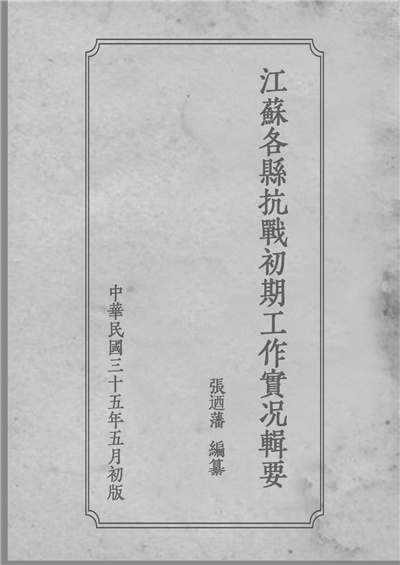 江蘇各縣抗戰初期工作實况輯要
張迺藩 編纂
中華民國三十五年五月初版